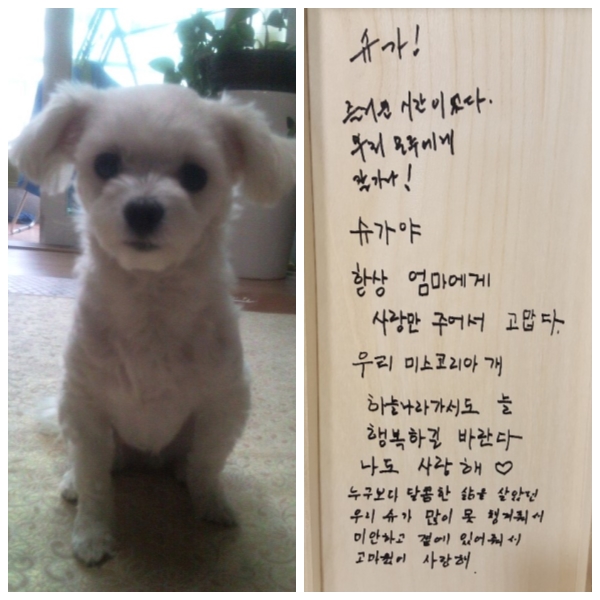 슈가!
즐거운 시간이었다.
우리 모두에게
잘가!
슈가야
항상 엄마에게
사랑만 주어서 고맙다.
우리 미소코리아 개
하늘나라가서도 늘
행복하길 바란다
나도 사랑해 ♡
누구보다 달콤한 삶을 살았던
우리 슈가 많이 못 챙겨줘서
미안하고 곁에 있어줘서
고마웠어 사랑해.